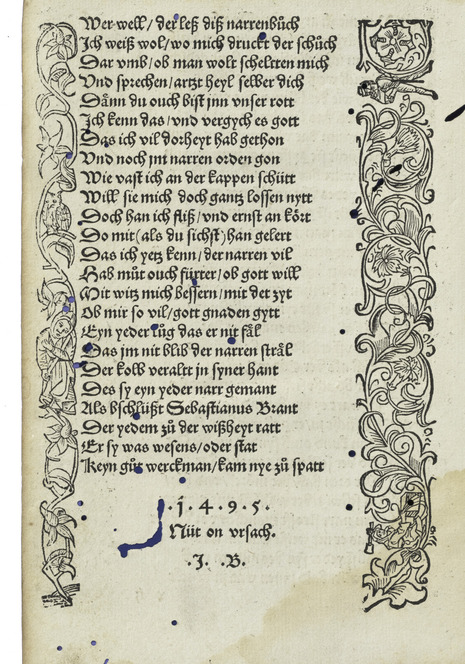 Wer well/ der leß diß narrenbůch
Ich weiß wol/ wo mich druckt der schůch
Dar vmb/ ob man wolt scheltten mich
Vnd sprechen/ artzt heyl selber dich
Dann du ouch bist jnn vnser rott
Jch kenn das/ vnd vergych es gott
Das ich vil dorheyt hab gethon
Vnd noch jm narren orden gon
Wie vast ich an der kappen schütt
Will sie mich doch gantz lossen nytt
Doch han ich fliß/ vnd ernst an kört
Do mit (als du sichst) han gelert
Das ich yetz kenn/ der narren vil
Hab můt ouch fürter/ ob gott will
Mit witz mich bessern/ mit der zyt
Ob mir so vil/ gott gnaden gytt
Eyn yeder lůg das er nit fäl
Das jm nit blib der narren sträl
Der kolb veraltt jn syner hant
Des sy eyn yeder narr gemant
Als bschlüßt Sebastianus Brant
Der yedem zů der wißheyt ratt
Er sy was wesens/ oder stat
Keyn gůt werckman/ kam nye zů spatt
·1·4·9·5·
Nüt on vrsach.
·J. ·B.